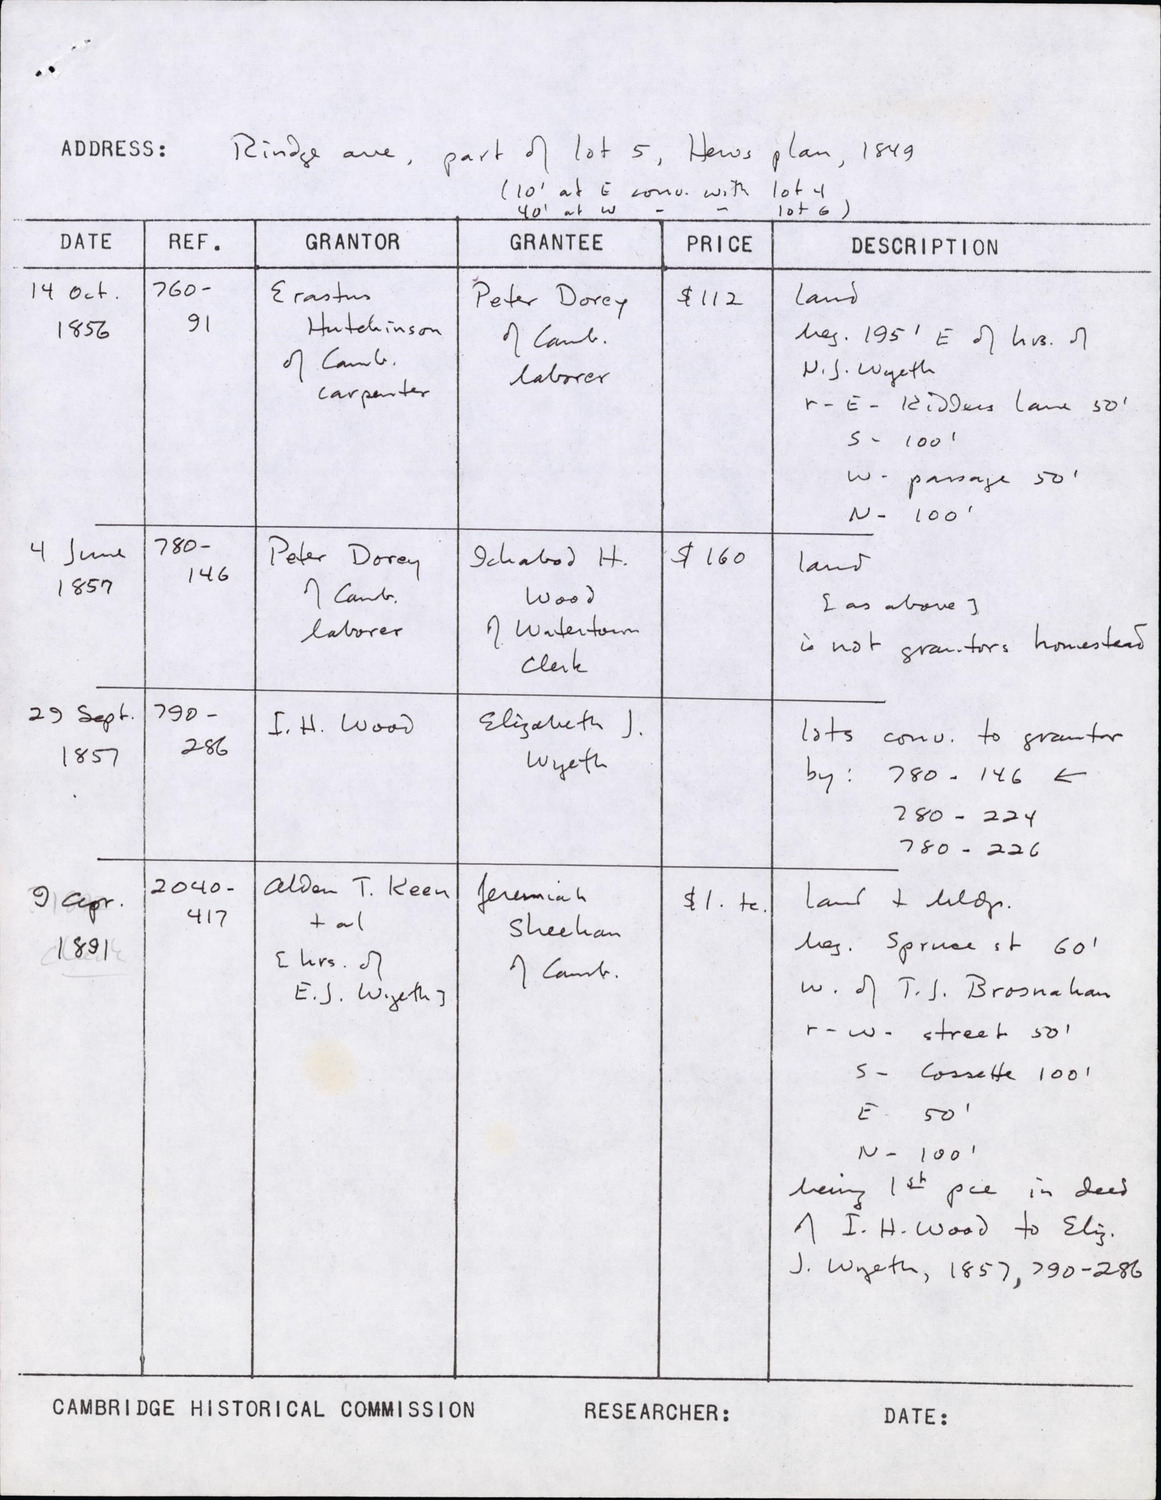 ADDRESS: Rindge ave, part of lot 5, Hews plan, 1849
(10' at E conv. with lot 4
40' at W - - lot 6)
DATE REF. GRANTOR GRANTEE PRICE DESCRIPTION
14 Oct.
1856
760-
91
Erastus
Hutchinson
of Camb.
carpenter
Peter Dorey
of Camb.
laborer
$112
land
beg. 195' E of hrs. of
N.J. Wyeth
r - E - Kidders lane 50'
S - 100'
W - passage 50'
N - 100'
4 June
1857
780-
146
Peter Dorey
of Camb.
laborer
Ichabod H.
Wood
of Watertown
Clerk
$160
land
[as above]
is not grantors homestead
29 Sept.
1857
790-
286
I. H. Wood
Elizabeth J.
Wyeth
lots conv. to grantor
by: 780 - 146 ←
780 - 224
780 - 226
9 Apr.
1891
2040-
417
Alden T. Keen
+ al
[hrs. of
E.J. Wyeth]
Jeremiah
Sheehan
of Camb.
$1. tc.
land + bldgs.
beg. Spruce st 60'
W. of T.J. Brosnahan
r - W - street 50'
S - Cossette 100'
E 50'
N - 100'
being 1st pce in deed
of I. H. Wood to Eliz.
J. Wyeth, 1857, 790-286
CAMBRIDGE HISTORICAL COMMISSION RESEARCHER: DATE: